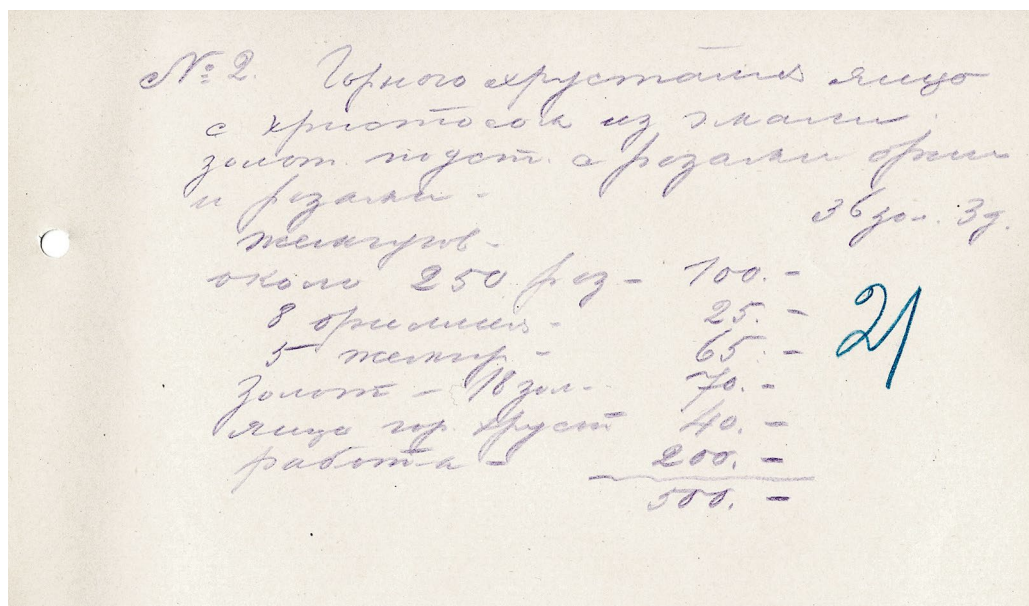 № 2. Горного хрусталя яицо
с христосом из эмали
золот. подст. с розами брил
и розами -
36 зол. 3 д.
жемчугов -
около 250 роз - 100. -
8 брилиан - 25. -
5 жемчуг - 65. -
золот - 18 зол - 70. -
яицо гор. хруст 40. -
работа - 200. -
500. -
21